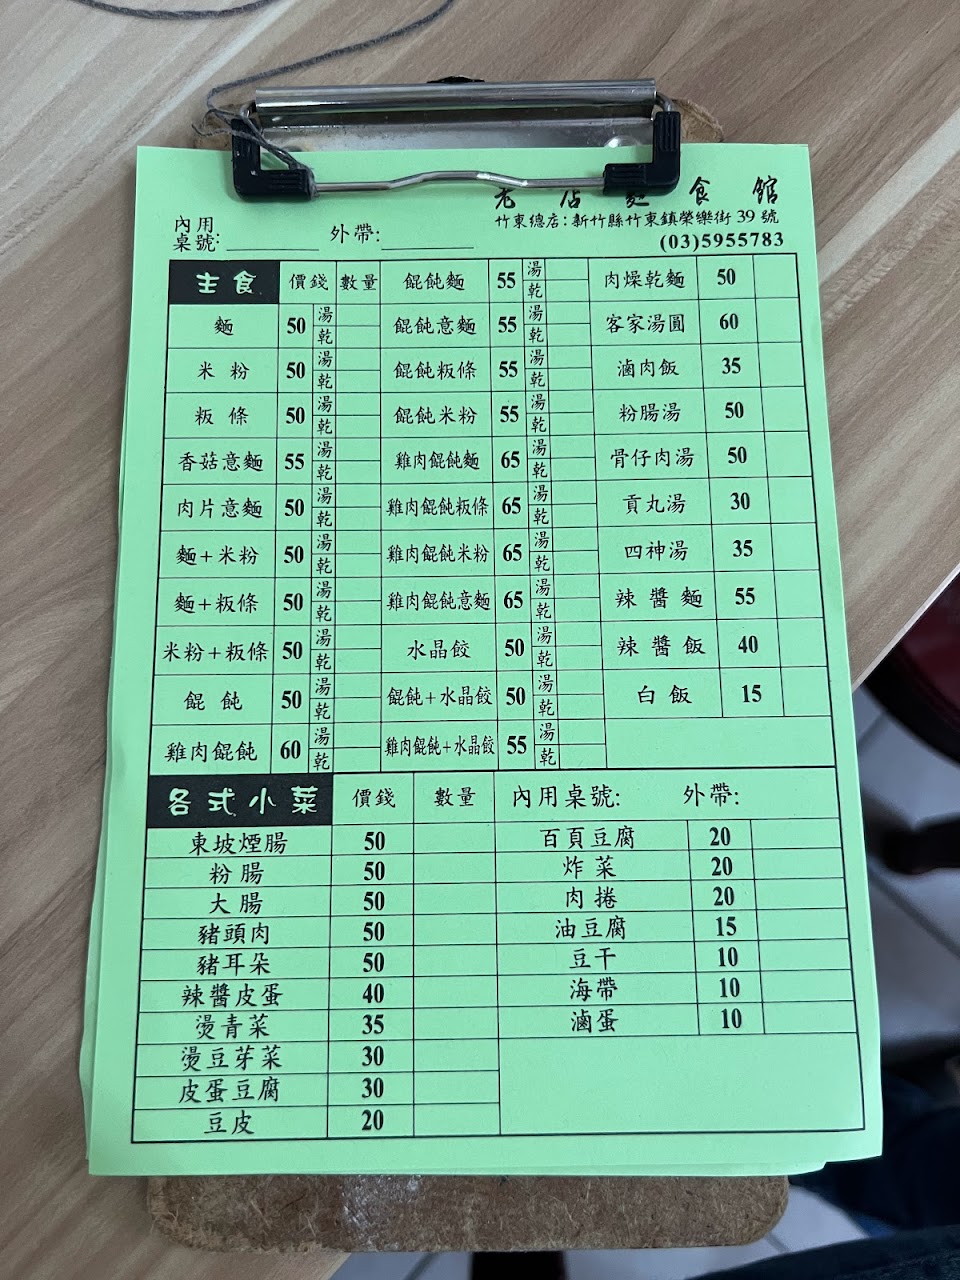 老店麵食館
竹東總店:新竹縣竹東鎮榮樂街39號
(03)5955783
內用桌號: 外帶:
主食 價錢 數量 餛飩麵 55 湯 乾 肉燥乾麵 50
麵 50 湯 乾 餛飩意麵 55 湯 乾 客家湯圓 60
米粉 50 湯 乾 餛飩粄條 55 湯 乾 滷肉飯 35
粄條 50 湯 乾 餛飩米粉 55 湯 乾 粉腸湯 50
香菇意麵 55 湯 乾 雞肉餛飩麵 65 湯 乾 骨仔肉湯 50
肉片意麵 50 湯 乾 雞肉餛飩粄條 65 湯 乾 貢丸湯 30
麵+米粉 50 湯 乾 雞肉餛飩米粉 65 湯 乾 四神湯 35
麵+粄條 50 湯 乾 雞肉餛飩意麵 65 湯 乾 辣醬麵 55
米粉+粄條 50 湯 乾 水晶餃 50 湯 乾 辣醬飯 40
餛飩 50 湯 乾 餛飩+水晶餃 50 湯 乾 白飯 15
雞肉餛飩 60 湯 乾 雞肉餛飩+水晶餃 55 湯 乾
各式小菜 價錢 數量 內用桌號: 外帶:
東坡煙腸 50 百頁豆腐 20
粉腸 50 炸菜 20
大腸 50 肉捲 20
豬頭肉 50 油豆腐 15
豬耳朵 50 豆干 10
辣醬皮蛋 40 海帶 10
燙青菜 35 滷蛋 10
燙豆芽菜 30
皮蛋豆腐 30
豆皮 20